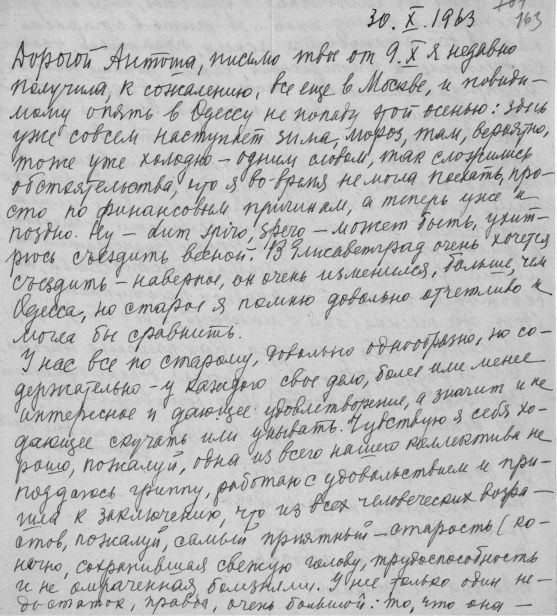 30.X.1963
163
Дорогой Антоша, письмо твое от 9.X я недавно
получила, к сожалению, все еще в Москве, и повиди-
мому опять в Одессу не попаду этой осенью: здесь
уже совсем наступает зима, мороз, там, вероятно,
тоже уже холодно – одним словом, так сложились
обстоятельства, что я во-время не могла поехать, про-
сто по финансовым причинам, а теперь уже и
поздно. Ну – dum spiro, spero – может быть, ухит-
рюсь съездить весной. В Елисаветград очень хочется
съездить – наверное, он очень изменился, больше, чем
Одесса, но старое я помню довольно отчетливо и
могла бы сравнить.
У нас все по старому, довольно однообразно, но со-
держательно – у каждого свое дело, более или менее
интересное и дающее удовлетворение, а значит и не
дающее скучать или унывать. Чувствую я себя хо-
рошо, пожалуй, одна из всего нашего коллектива не
поддаюсь гриппу, работаю с удовольствием и при-
шла к заключению, что из всех человеческих возра-
стов, пожалуй, самый приятный – старость (ко-
нечно, сохранившая свежую голову, трудоспособность
и не омраченная болезнями. У нее только один не-
достаток, правда, очень большой: то, что она –